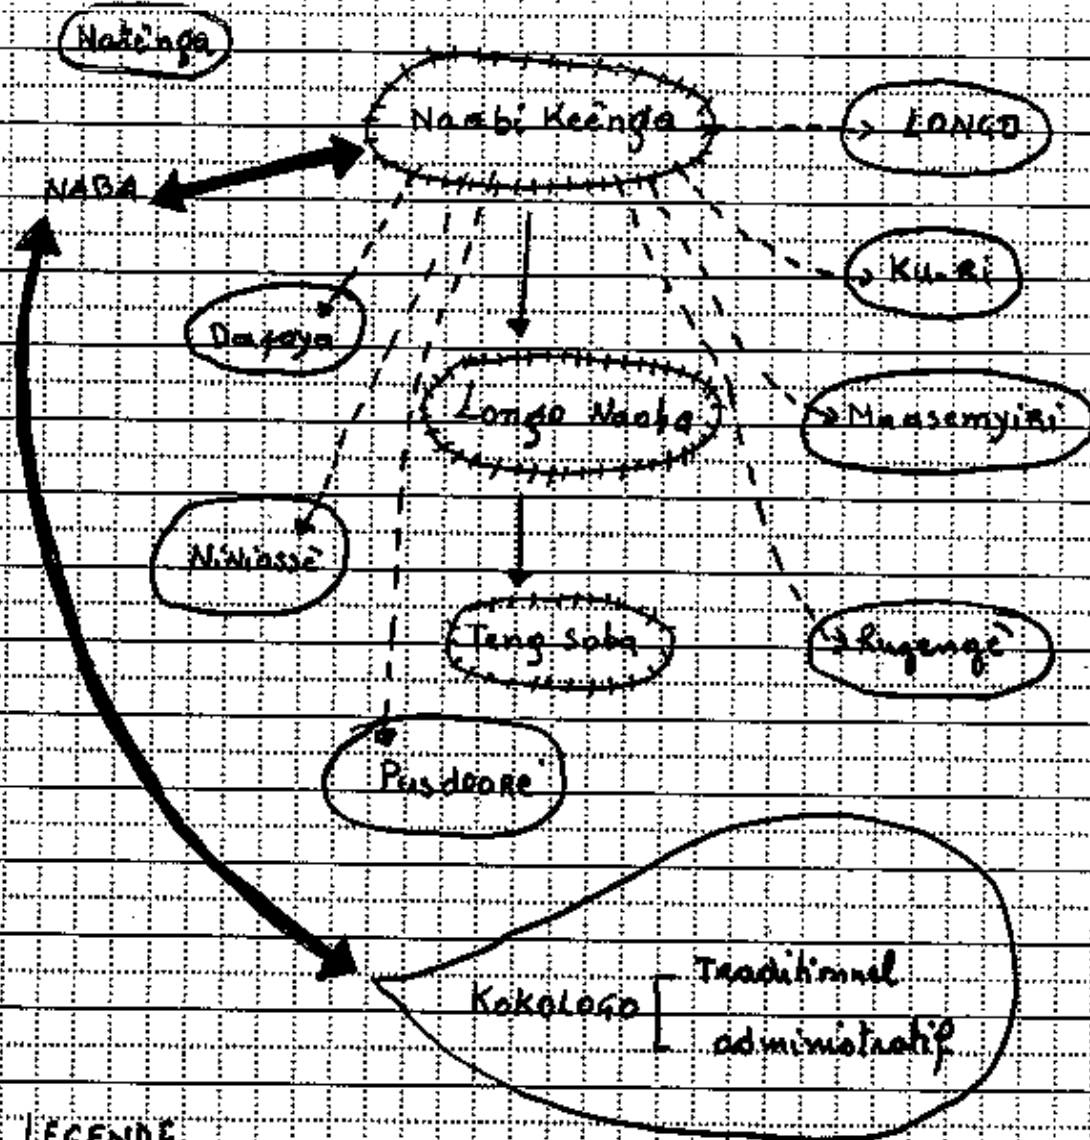 Natênga
Naabi Keênga
LONGO
NABA
Ku-Ri
Dagoya
Longo Naaba
Maasemyiri
Niwiassé
Teng Soba
Rugengé
Pusdeore
Traditionnel
KOKOLOGO
administratif
LEGENDE